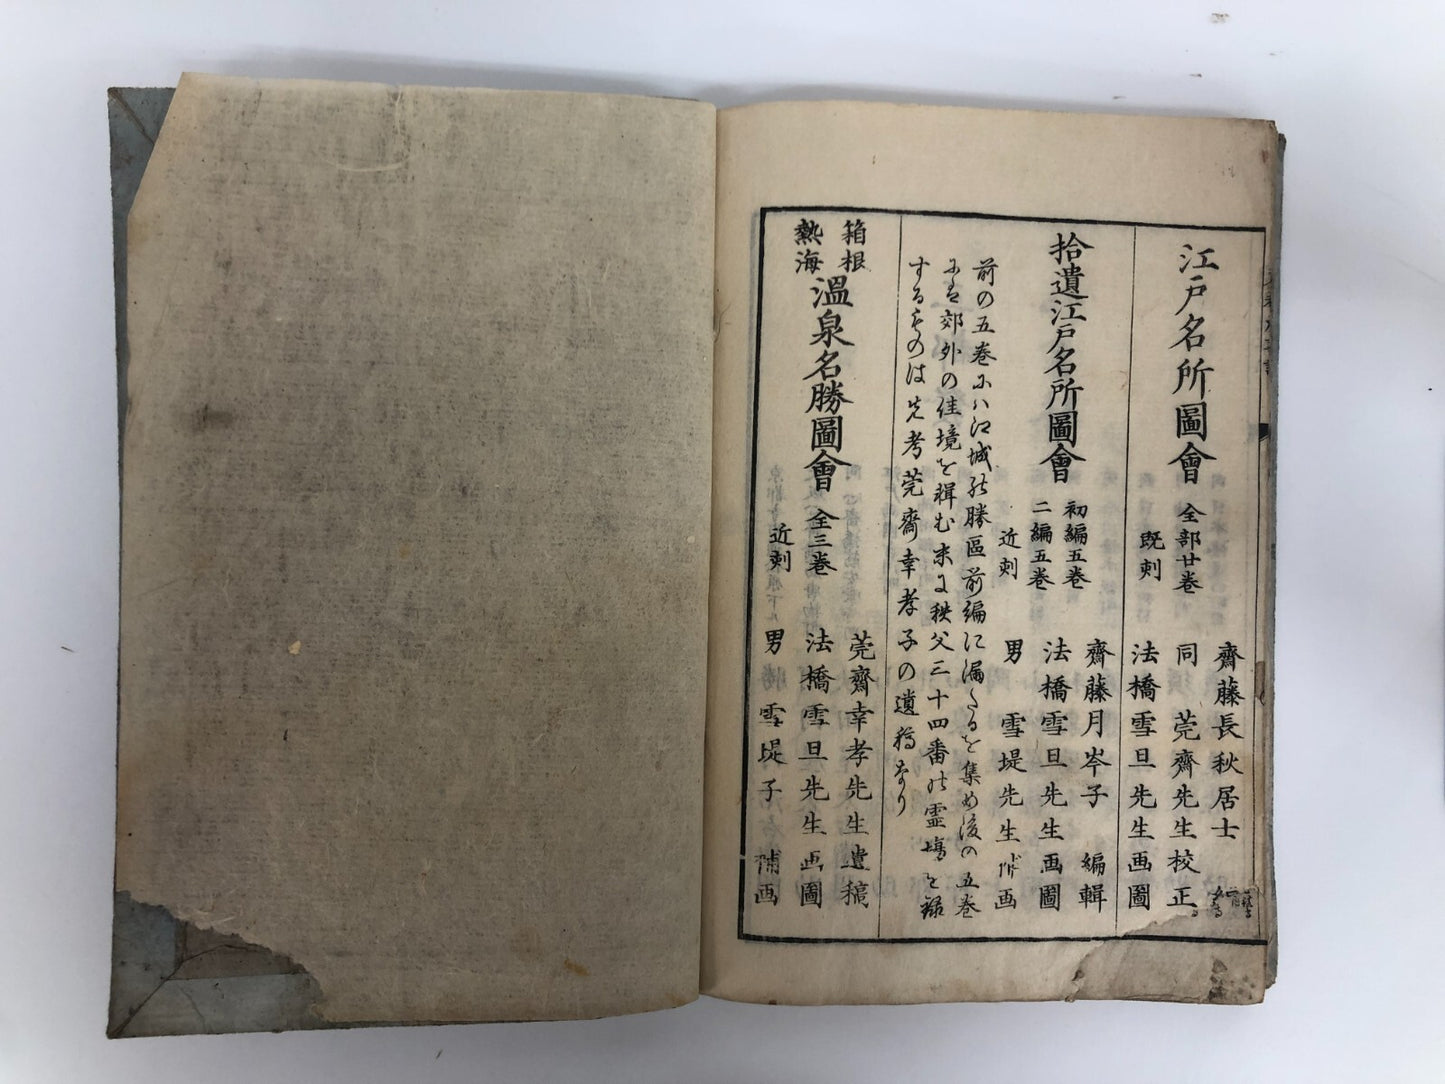 江戸名所圖會
全部廿卷
既刻
齋藤長秋居士
同 莞齋先生校正
法橋雪旦先生画圖
拾遺江戸名所圖會
初編五卷
二編五卷
近刻
齋藤月岑子 編輯
法橋雪旦先生画圖
男 雪堤先生 画
前の五卷にハ江城の勝區前編に漏たるを集め後の五卷
には郊外の佳境を輯む末に秩父三十四番の霊場を録
するものは先考莞齋幸孝子の遺稿なり
箱根
熱海
温泉名勝圖會
全三卷
近刻
莞齋幸孝先生遺稿
法橋雪旦先生画圖
男 雪堤子 補画